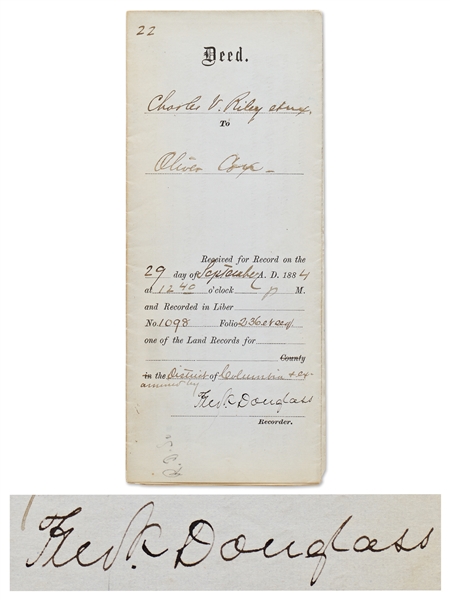 22
Deed.
Charles V. Riley et ux.
To
Oliver Cox
Received for Record on the
29 day of September A. D. 1884
at 12 40 o'clock p M.
and Recorded in Liber
No. 1098 Folio 236 et seq
one of the Land Records for
County
in the District of Columbia & ex-
amined by
Fredk Douglass
Recorder.
Fredk Douglass